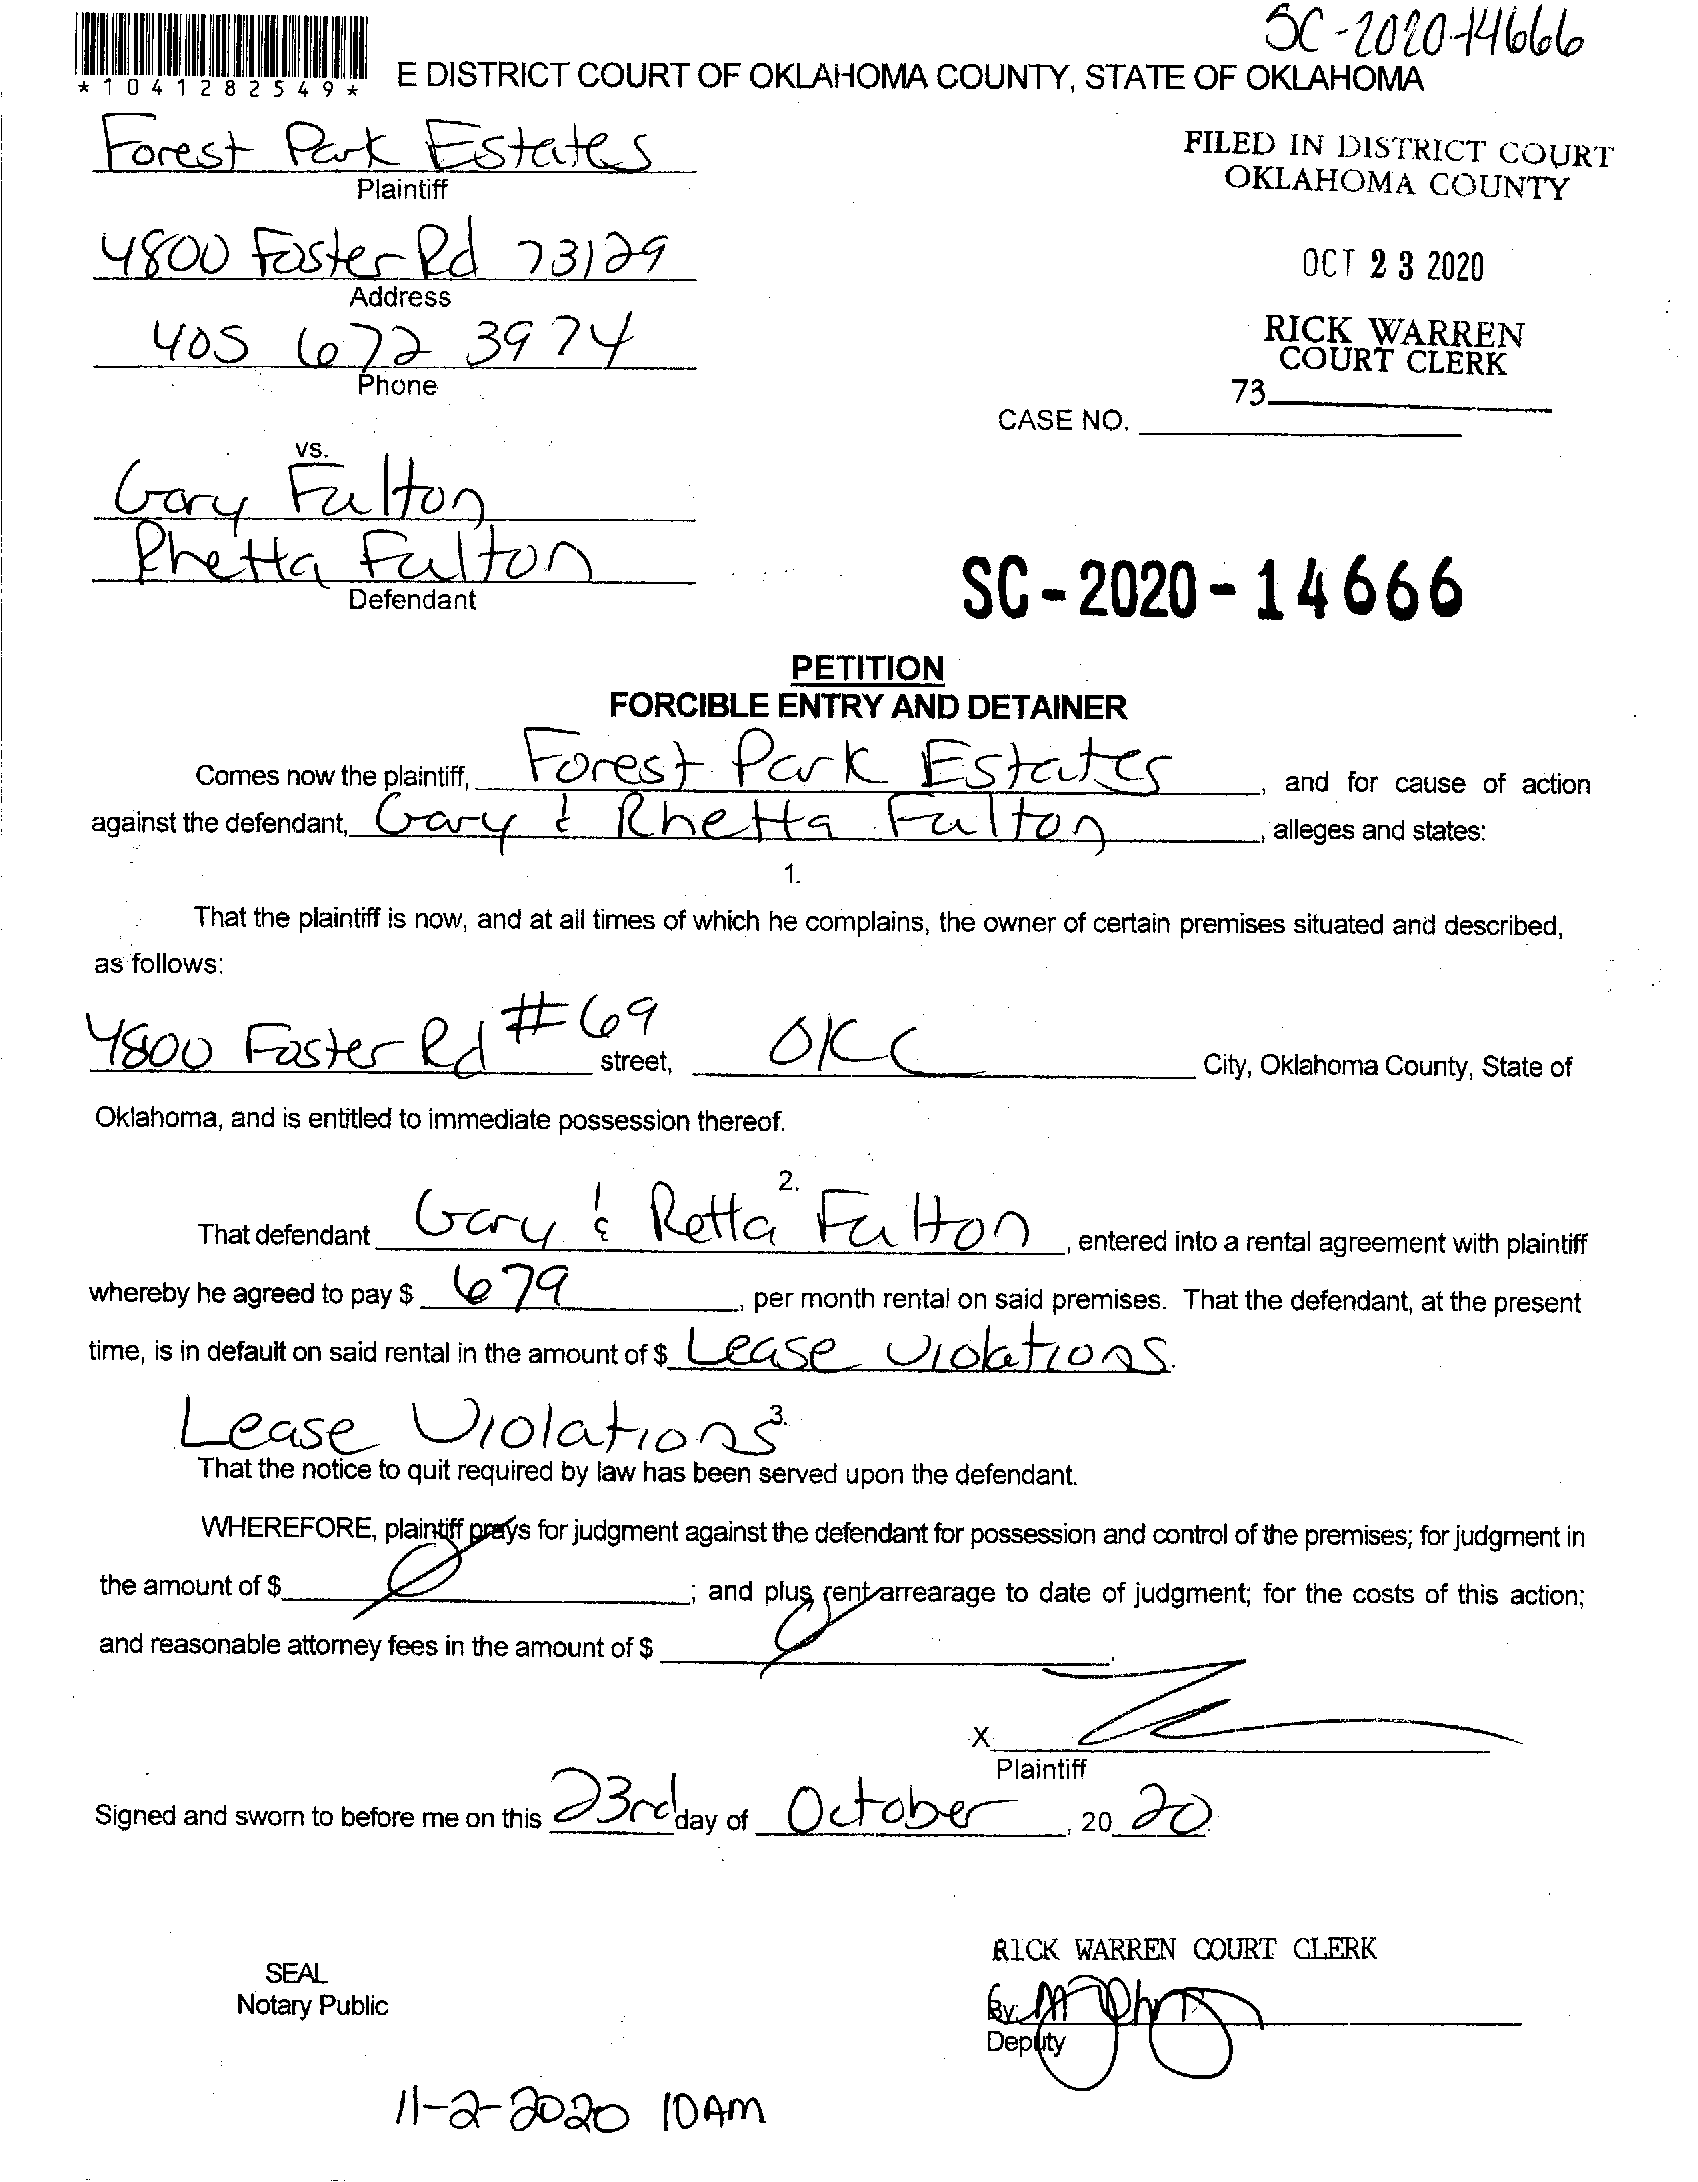 SC-2020-14666
*1041282549*
E DISTRICT COURT OF OKLAHOMA COUNTY, STATE OF OKLAHOMA
Forest Park Estates
Plaintiff
FILED IN DISTRICT COURT
OKLAHOMA COUNTY
4800 Foster Rd 73129
Address
OCT 23 2020
405 672 3974
Phone
RICK WARREN
COURT CLERK
73
CASE NO.
vs.
Gary Fulton
Rhetta Fulton
Defendant
SC-2020-14666
PETITION
FORCIBLE ENTRY AND DETAINER
Comes now the plaintiff, Forest Park Estates, and for cause of action
against the defendant, Gary & Rhetta Fulton, alleges and states:
1.
That the plaintiff is now, and at all times of which he complains, the owner of certain premises situated and described,
as follows:
4800 Foster Rd #69 street, OKC City, Oklahoma County, State of
Oklahoma, and is entitled to immediate possession thereof.
2.
That defendant Gary & Retta Fulton, entered into a rental agreement with plaintiff
whereby he agreed to pay $ 679, per month rental on said premises. That the defendant, at the present
time, is in default on said rental in the amount of $ Lease Violations.
Lease Violations
3.
That the notice to quit required by law has been served upon the defendant.
WHEREFORE, plaintiff prays for judgment against the defendant for possession and control of the premises; for judgment in
the amount of $ Ø; and plus rent arrearage to date of judgment; for the costs of this action;
and reasonable attorney fees in the amount of $ Ø.
X
Plaintiff
Signed and sworn to before me on this 23rd day of October, 20 20.
RICK WARREN COURT CLERK
SEAL
Notary Public
By:
Deputy
11-2-2020 10AM